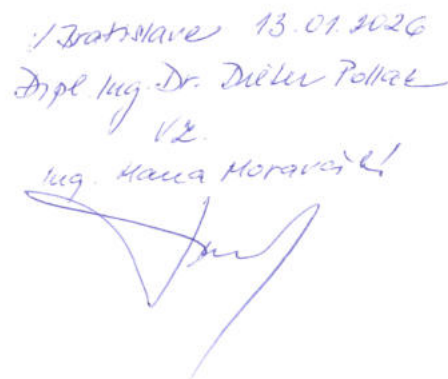 V Bratislave 13.01.2026
Dipl Ing. Dr. Dieter Pollak
v.z.
Ing. Hana